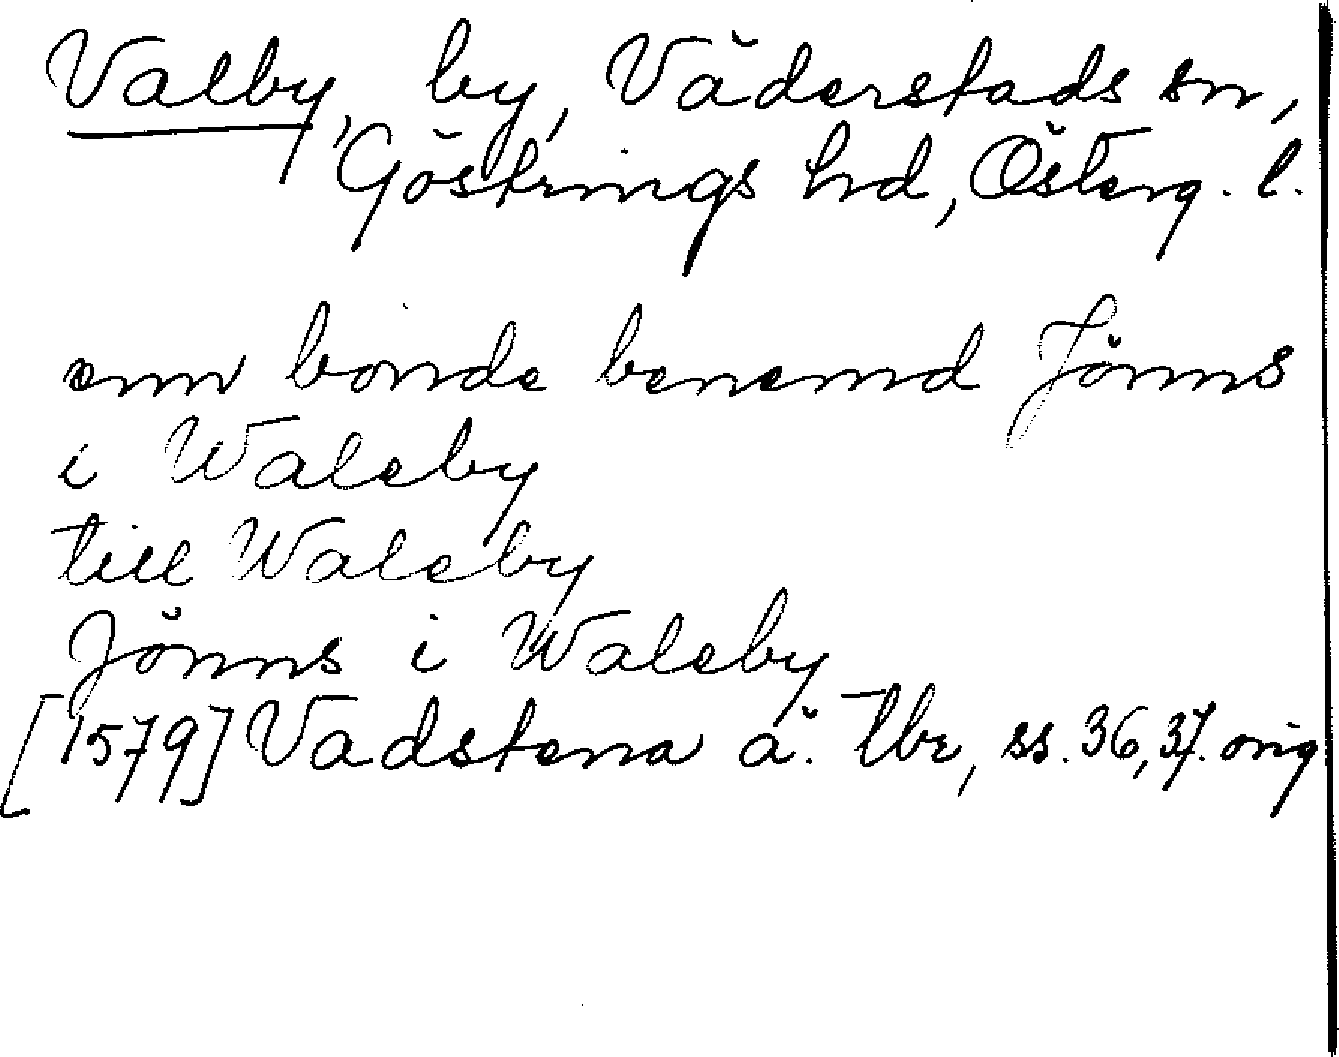 Valby, by, Väderstads sn,
Göstrings hd, Österg. l.
enn bonde benemd Jönns
i Waleby
till Waleby
Jönns i Waleby
[1579] Vadstena ä. tbr, ss. 36, 37. orig